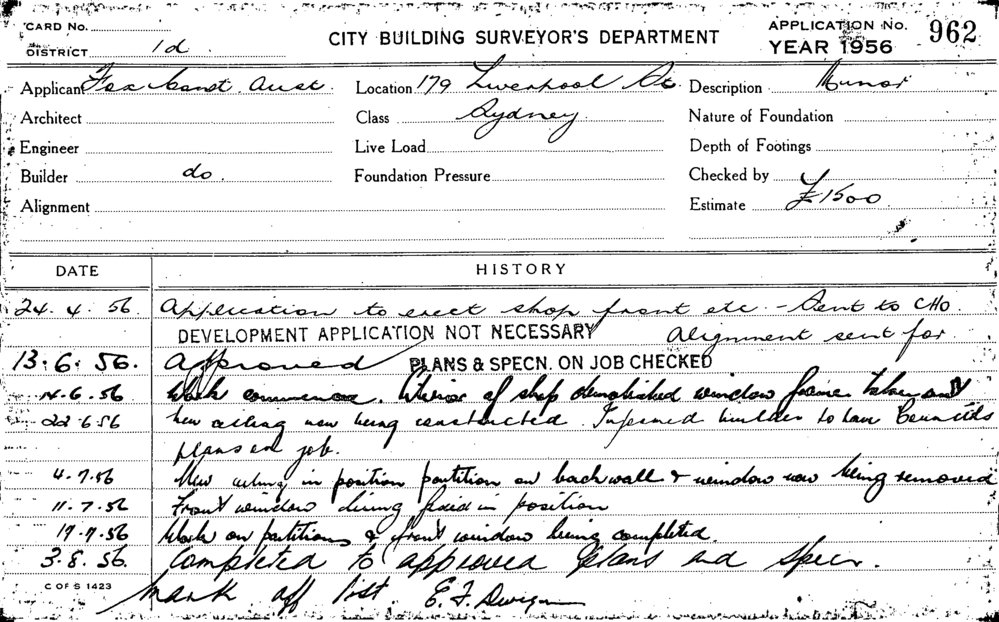 CARD No.
DISTRICT 1d
CITY BUILDING SURVEYOR'S DEPARTMENT
APPLICATION No. 962
YEAR 1956
Applicant Fox Const. Aust. Location 179 Liverpool St. Description Minor
Architect Class Sydney Nature of Foundation
Engineer Live Load Depth of Footings
Builder do. Foundation Pressure Checked by
Alignment Estimate £1500
DATE HISTORY
24.4.56 Application to erect shop front etc. - Sent to CHO.
DEVELOPMENT APPLICATION NOT NECESSARY Alignment sent for
13.6.56. Approved PLANS & SPECN. ON JOB CHECKED
14.6.56 Work commenced. of shop demolished window frame taken out
22.6.56 New ceiling now being constructed. Informed builder to have Councils
plans on job.
4.7.56 New ceiling in position partition on back wall & window now being removed
11.7.56 Front window being fixed in position
17.7.56 Work on partitions & front window being completed.
3.8.56. Completed to approved plans and specn.
C OF S 1423
mark off list. E.F.